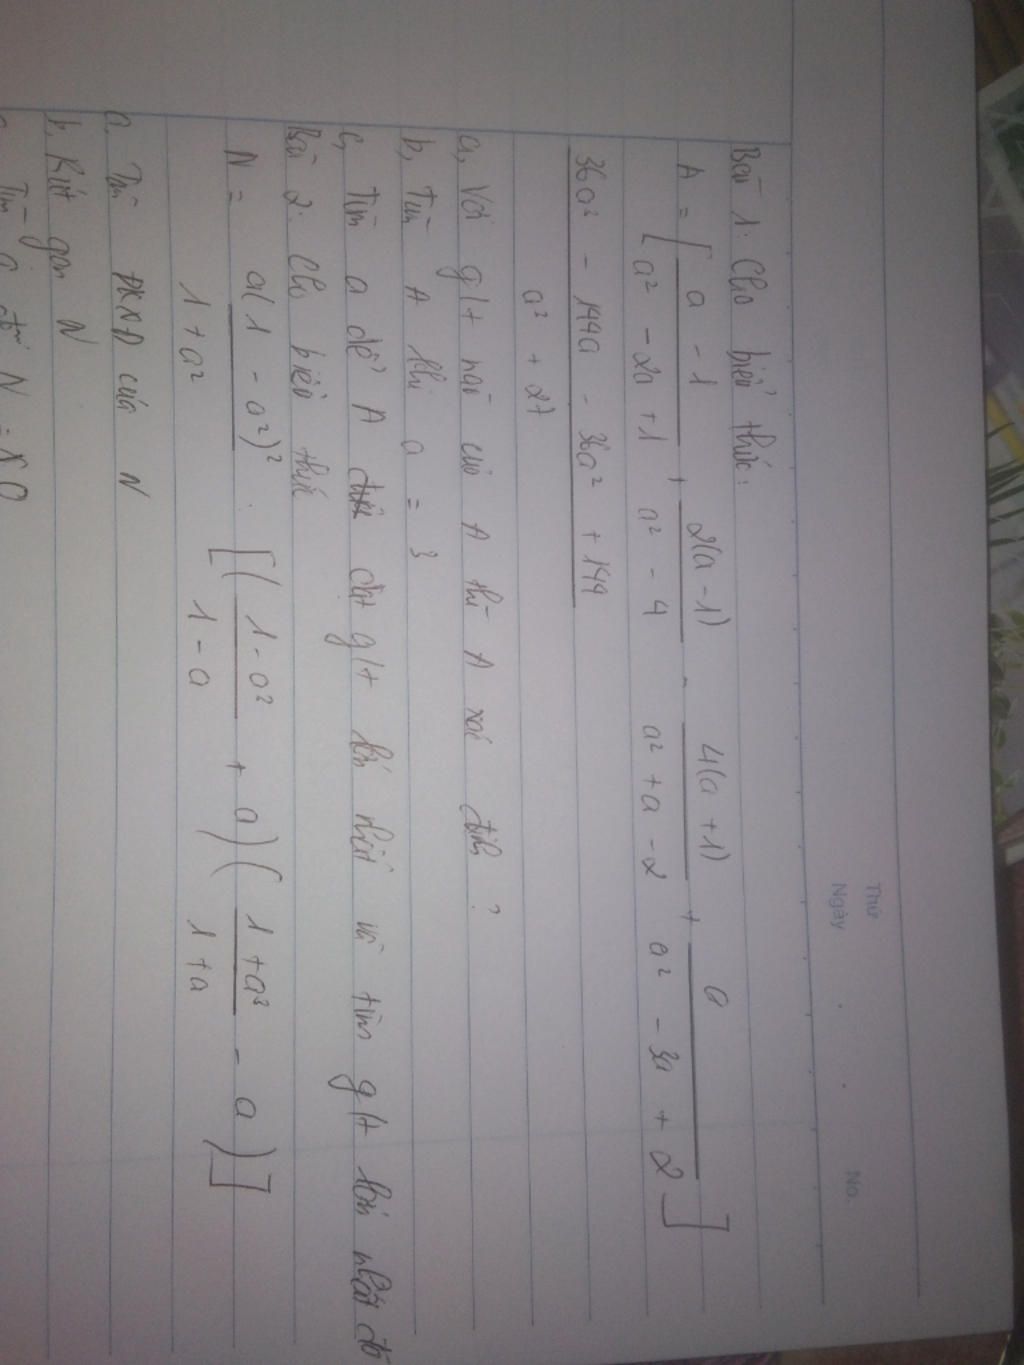 Thứ
Ngày
No.
Bài 1: Cho biểu thức:
A = [ (a - 1)/(a² - 2a + 1) + 2(a - 1)/(a² - 4) - 4(a + 1)/(a² + a - 2) + a/(a² - 3a + 2) ]
(36a² - 144a - 36a² + 144)/(a² + 27)
a, Với g/t nào của A thì A xác định ?
b, Tìm A khi a = 3
c, Tìm a để A đạt g/t lớn nhất và tìm g/t lớn nhất đó
Bài 2: Cho biểu thức
N = a(1 - a²)²/(1 + a²) . [ ( (1 - a²)/(1 - a) + a ) ( (1 + a³)/(1 + a) - a ) ]
a, Tìm ĐKXĐ của N
b, Rút gọn N
Tìm a để N =